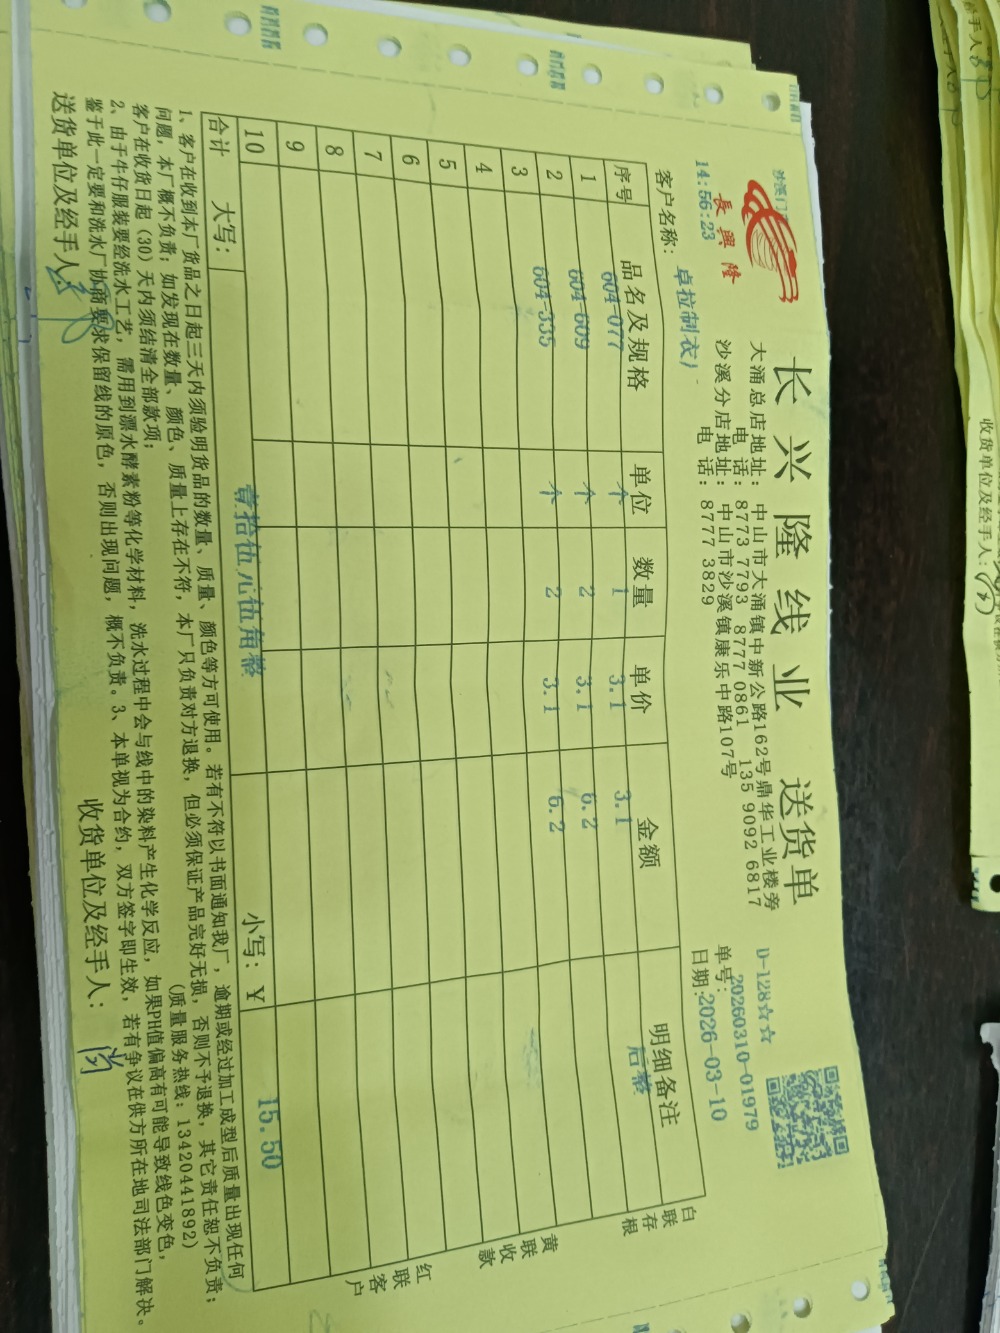 沙溪门
14:56:23
長興隆
长兴隆线业 送货单
大涌总店地址：中山市大涌镇中新公路162号鼎华工业楼旁
电 话：8773 7793 8777 0861 135 9092 6817
沙溪分店地址：中山市沙溪镇康乐中路107号
电 话：8777 3829
D-128☆☆
单号：20260310-01979
日期：2026-03-10
客户名称：卓拉制衣）
序号 品名及规格 单位 数量 单价 金额 明细备注
1 604-077 个 1 3.1 3.1 后整
2 604-609 个 2 3.1 6.2
3 604-335 个 2 3.1 6.2
4
5
6
7
8
9
10
合计 大写： 壹拾伍元伍角整 小写：¥ 15.50
白联存根
黄联收款
红联客户
1、客户在收到本厂货品之日起三天内须验明货品的数量、质量、颜色等方可使用。若有不符以书面通知我厂，逾期或经过加工成型后质量出现任何
问题，本厂概不负责；如发现在数量、颜色、质量上存在不符，本厂只负责对方退换，但必须保证产品完好无损，否则不予退换，其它责任恕不负责；
客户在收货日起（30）天内须结清全部款项；
（质量服务热线：13420441892）
2、由于牛仔服装要经洗水工艺，需用到漂水酵素粉等化学材料，洗水过程中会与线中的染料产生化学反应，如果PH值偏高有可能导致线色变色，
鉴于此一定要和洗水厂协商要求保留线的原色，否则出现问题，概不负责。3、本单视为合约，双方签字即生效，若有争议在供方所在地司法部门解决。
送货单位及经手人：
收货单位及经手人：
收货单位及经手人：